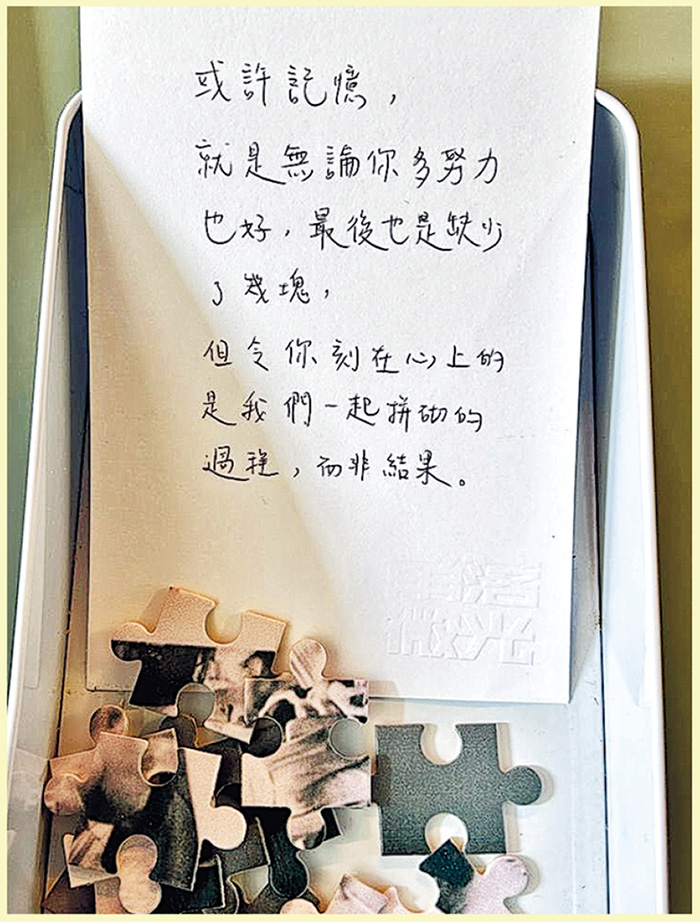 或許記憶，
就是無論你多努力
也好，最後也是缺少
了幾塊，
但令你刻在心上的
是我們一起拼砌的
過程，而非結果。